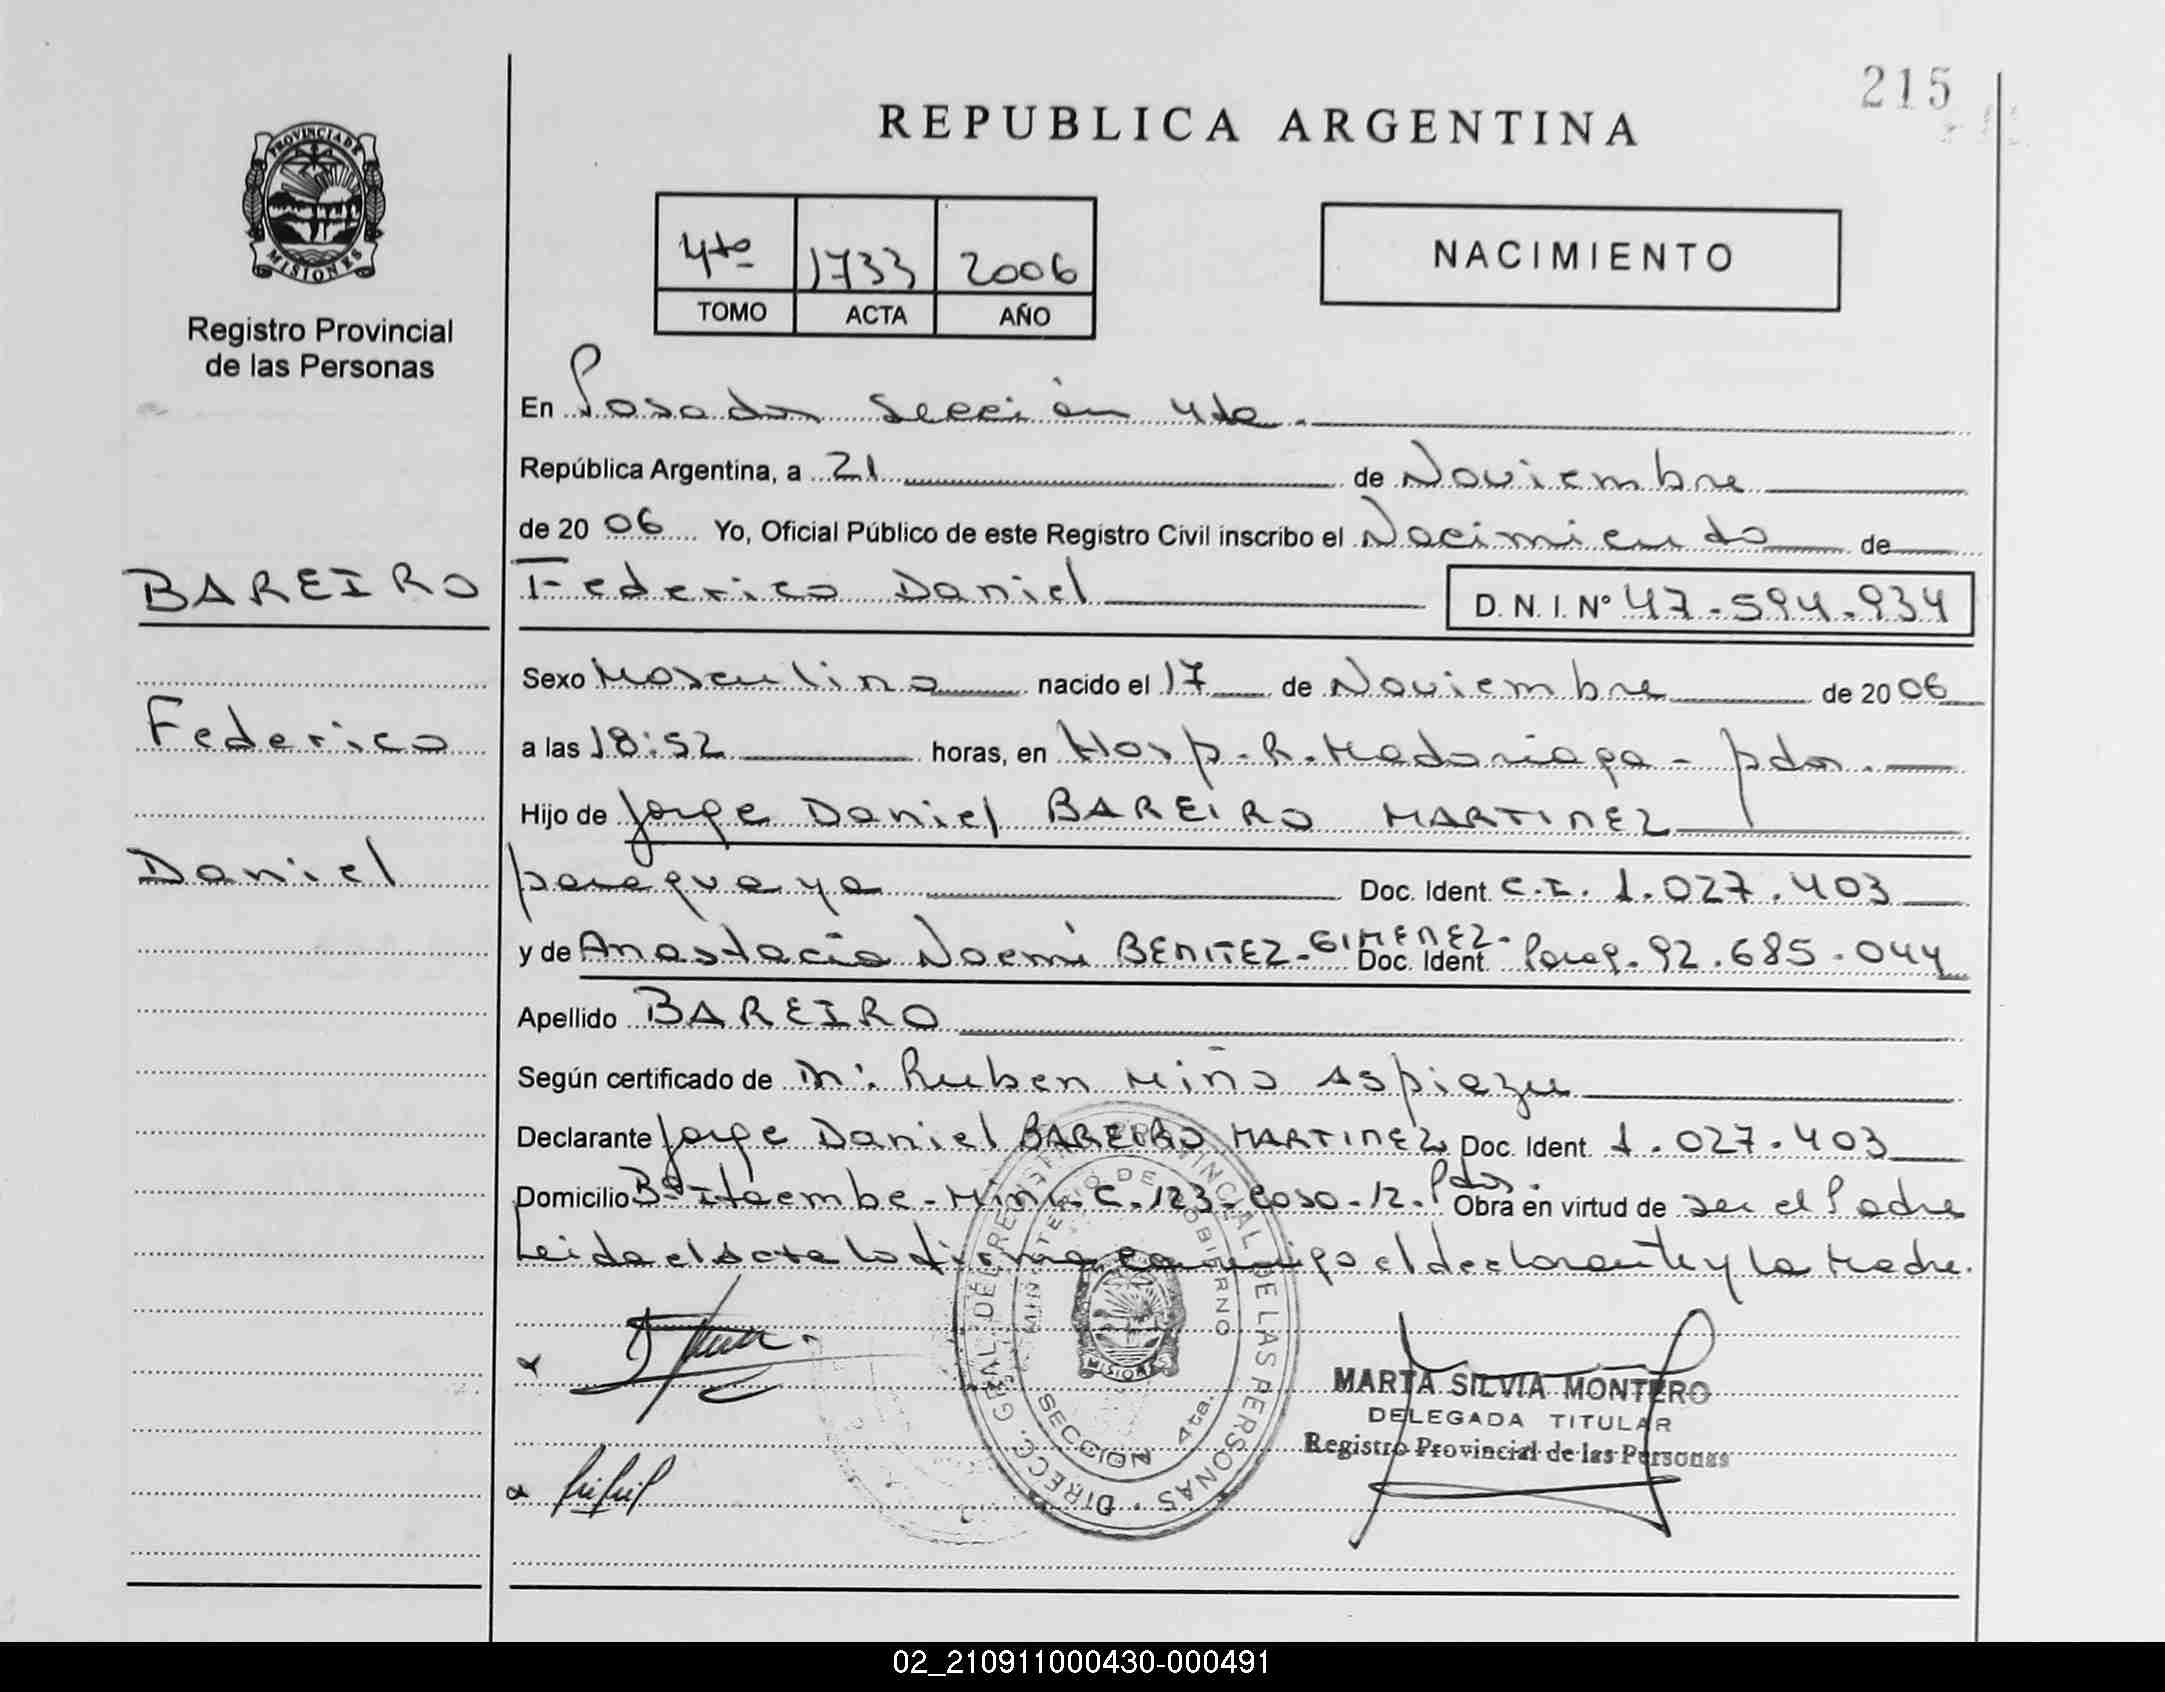 215
REPUBLICA ARGENTINA
PROVINCIA DE
MISIONES
Registro Provincial
de las Personas
4to 1733 2006
TOMO ACTA AÑO
NACIMIENTO
En Posadas Sección 4ta.
República Argentina, a 21 de Noviembre
de 2006 Yo, Oficial Público de este Registro Civil inscribo el Nacimiento de
BAREIRO Federico Daniel D.N.I. Nº 47.594.934
Sexo Masculino nacido el 17 de Noviembre de 2006
Federico a las 18:52 horas, en Hosp. R. Madariaga - pdas.
Hijo de Jorge Daniel BAREIRO MARTINEZ
Daniel paraguaya Doc. Ident. C.I. 1.027.403
y de Anastacia Noemi BENITEZ-GIMENEZ- Doc. Ident. Parag. 92.685.044
Apellido BAREIRO
Según certificado de Ruben Miño Aspiazu
Declarante Jorge Daniel BAREIRO MARTINEZ Doc. Ident. 1.027.403
Domicilio Bº Itaembe-Mini-C.123-Casa-12-Pdas. Obra en virtud de ser el Padre
Leida el acta la firma conmigo el declarante y la Madre.
DIRECC. GRAL. DEL REGISTRO PROVINCIAL DE LAS PERSONAS
MINISTERIO DE GOBIERNO
MISIONES
SECCION 4ta.
MARTA SILVIA MONTERO
DELEGADA TITULAR
Registro Provincial de las Personas
02_210911000430-000491